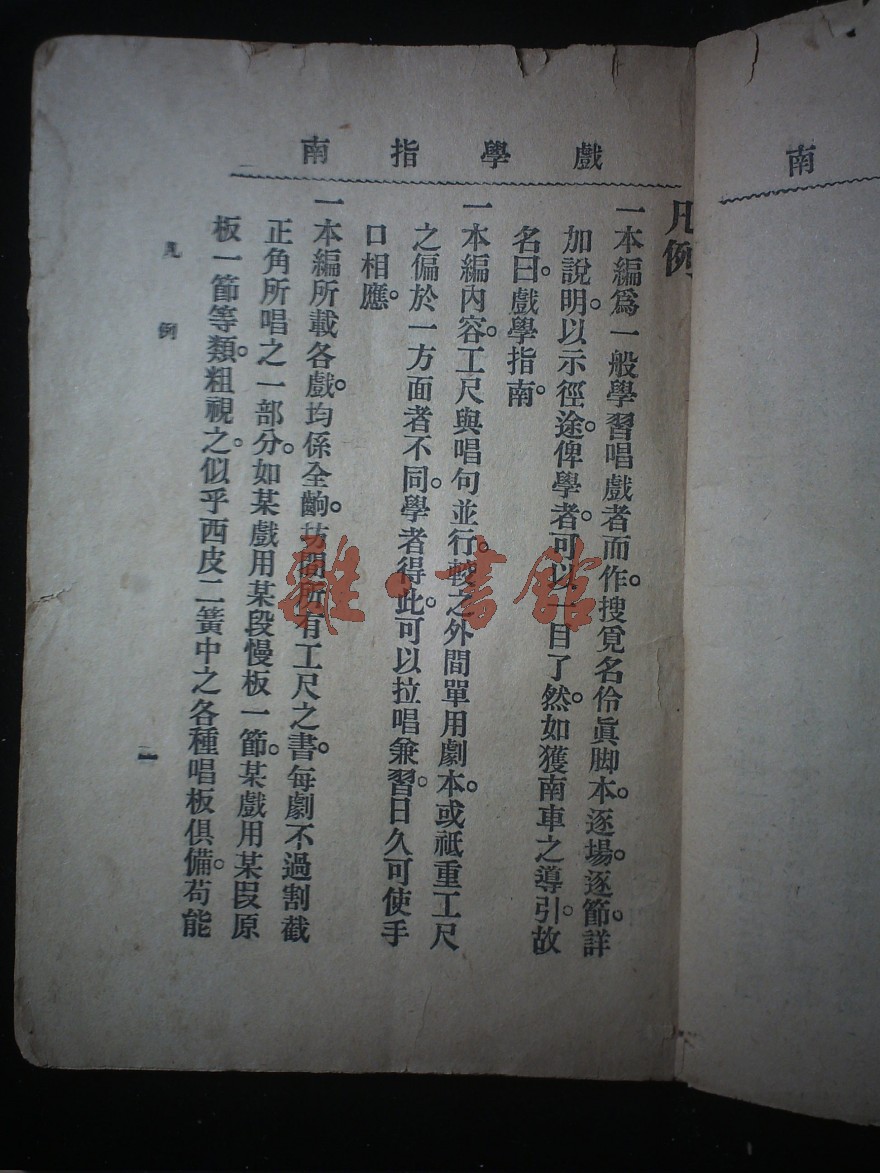 戲學指南
凡例
一本編爲一般學習唱戲者而作。搜覓名伶眞脚本。逐場。逐節。詳
加說明。以示徑途。俾學者。可以一目了然。如獲南車之導引。故
名曰。戲學指南。
一本編內容。工尺與唱句並行。較之外間單用劇本。或祗重工尺
之偏於一方面者不同。學者得此。可以拉唱兼習。日久可使手
口相應。
一本編所載各戲。均係全齣。坊間所有工尺之書。每劇不過割截
正角所唱之一部分。如某戲用某段慢板一節。某戲用某段原
板一節等類。粗視之。似乎西皮二簧中之各種唱板俱備。苟能
凡例
一
南
雜·書館